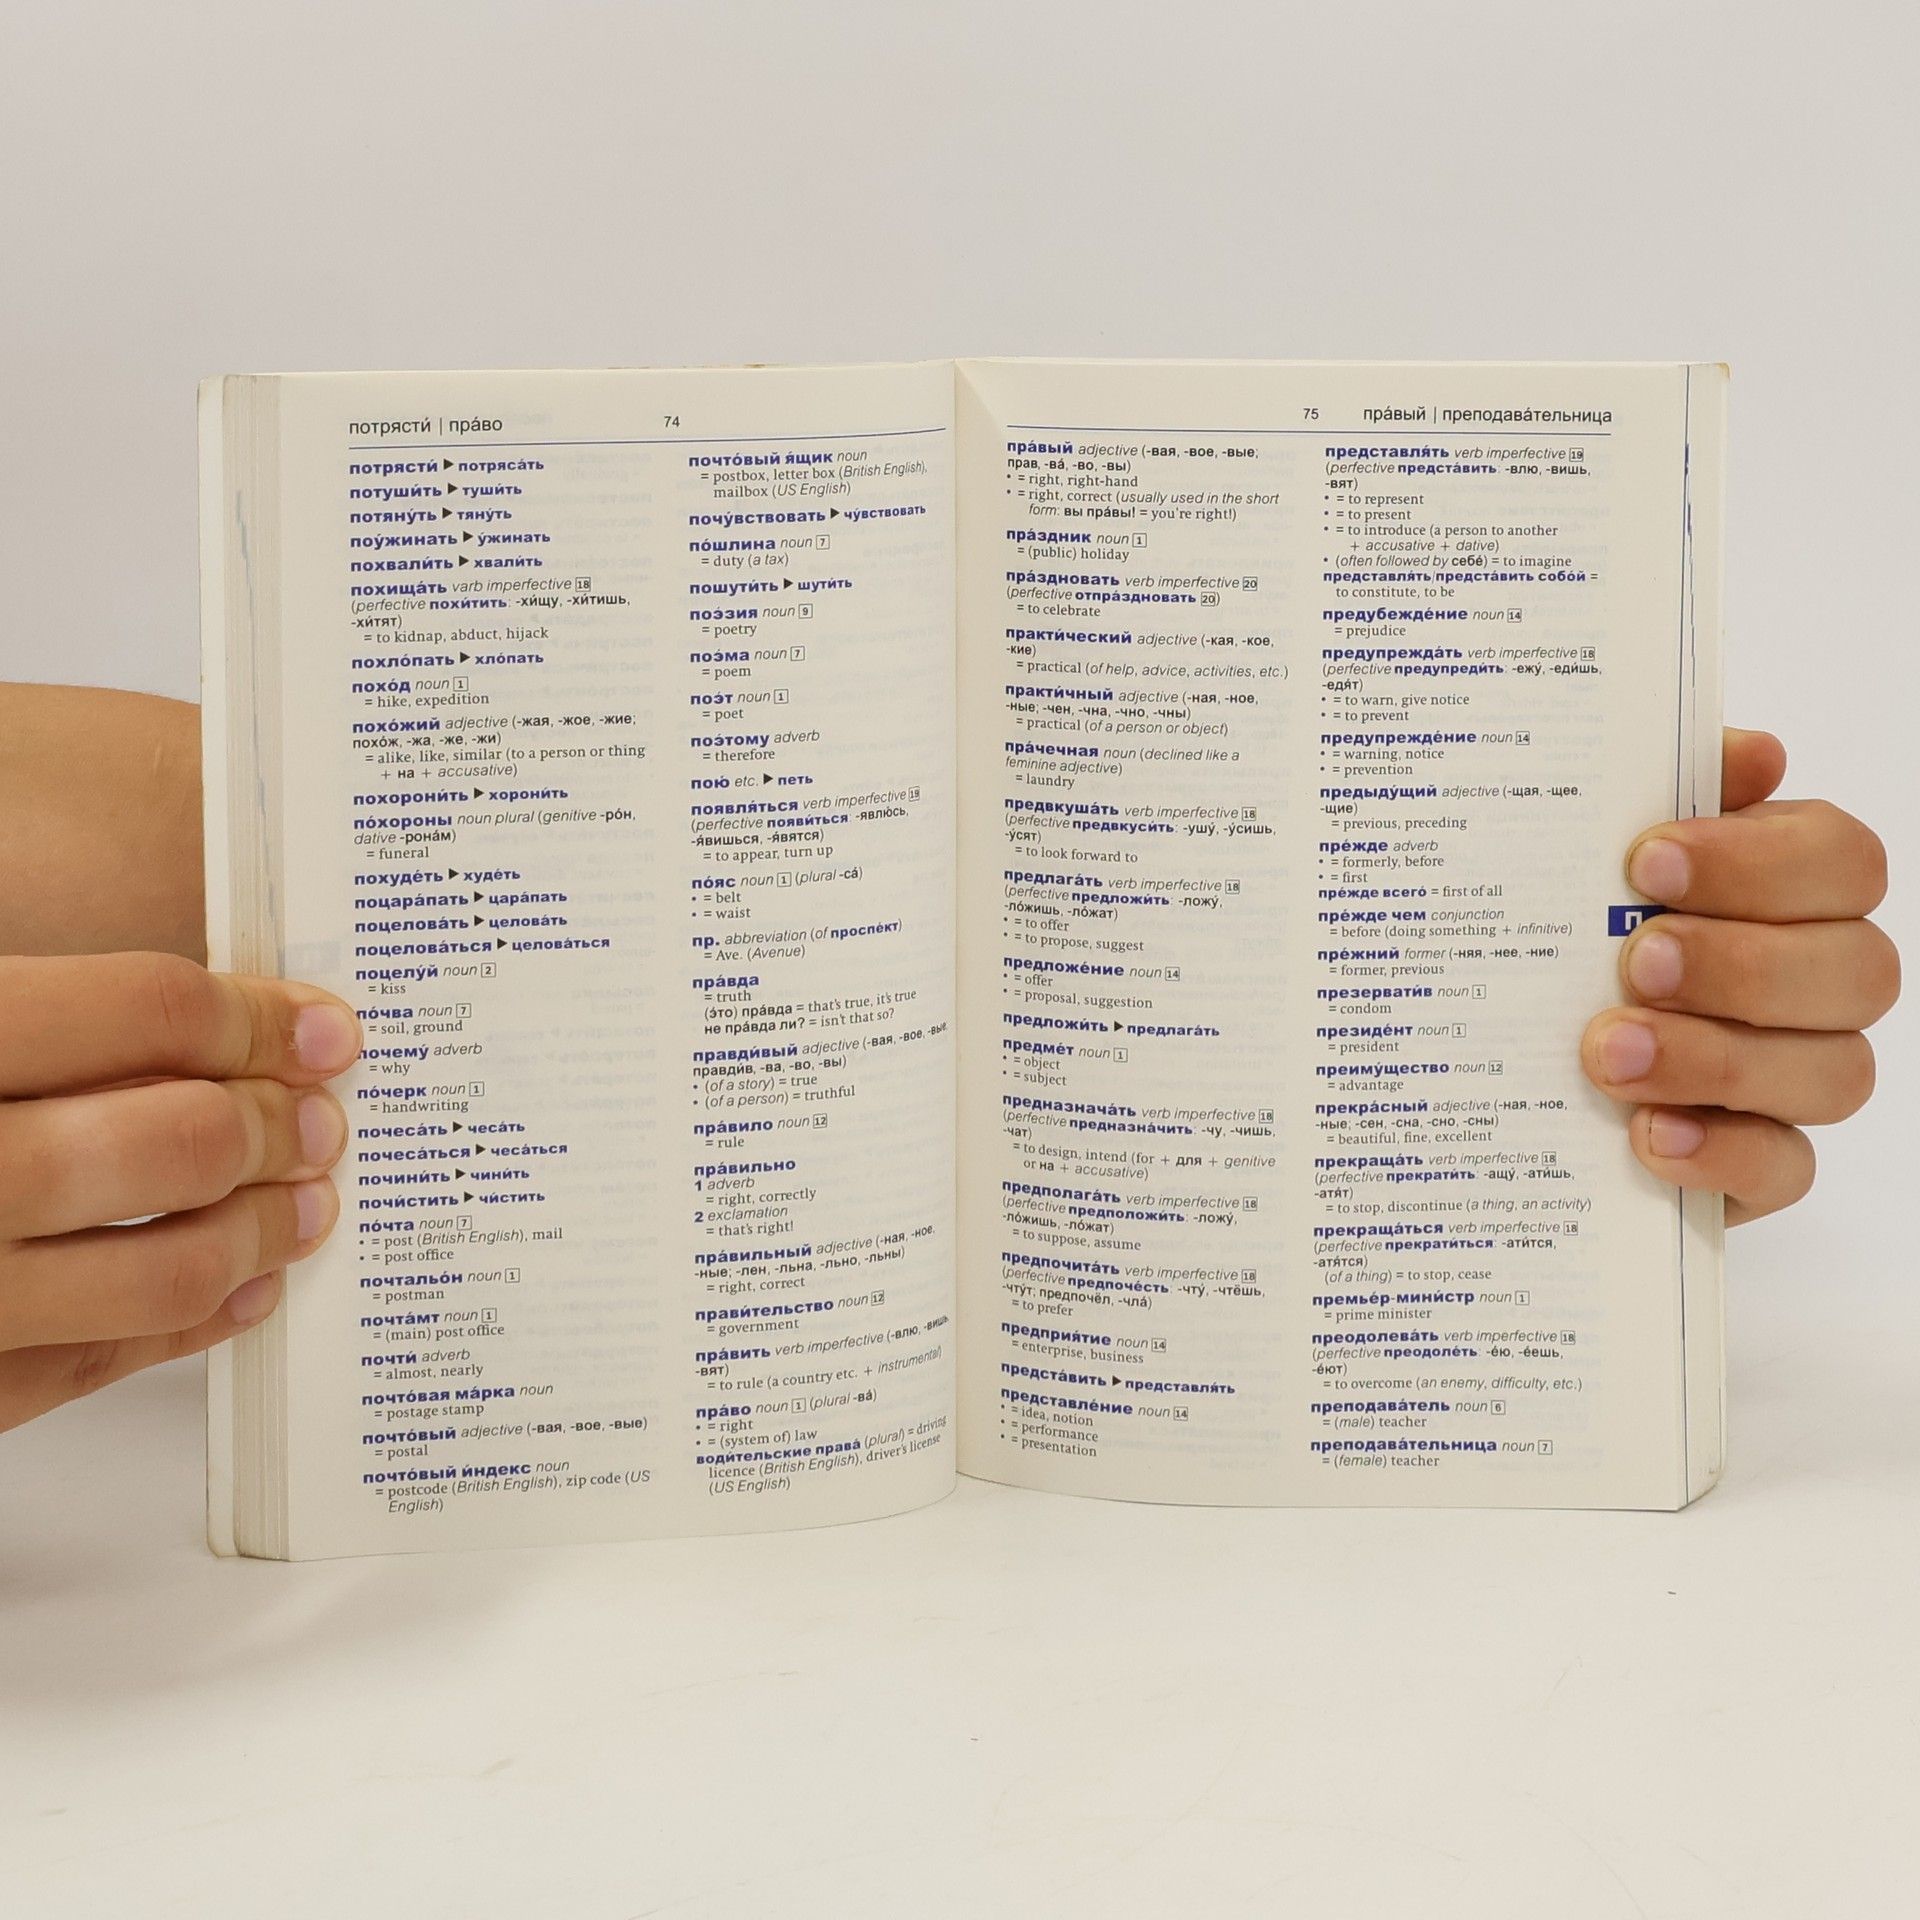 потрясти́ | пра́во 74
потрясти́ ▶ потряса́ть
потуши́ть ▶ туши́ть
потяну́ть ▶ тяну́ть
поу́жинать ▶ у́жинать
похвали́ть ▶ хвали́ть
похища́ть varb imperfective 18
(perfective похи́тить: -хи́щу, -хи́тишь,
-хи́тят)
= to kidnap, abduct, hijack
похло́пать ▶ хло́пать
похо́д noun 1
= hike, expedition
похо́жий adjective (-жая, -жое, -жие;
похо́ж, -жа, -же, -жи)
= alike, like, similar (to a person or thing
+ на + accusative)
похорони́ть ▶ хорони́ть
по́хороны noun plural (genitive -ро́н,
dative -рона́м)
= funeral
похуде́ть ▶ худе́ть
поцара́пать ▶ цара́пать
поцелова́ть ▶ целова́ть
поцелова́ться ▶ целова́ться
поцелу́й noun 2
= kiss
по́чва noun 7
= soil, ground
почему́ adverb
= why
по́черк noun 1
= handwriting
почеса́ть ▶ чеса́ть
почеса́ться ▶ чеса́ться
почини́ть ▶ чини́ть
почи́стить ▶ чи́стить
по́чта noun 7
• = post (British English), mail
• = post office
почтальо́н noun 1
= postman
почта́мт noun 1
= (main) post office
почти́ adverb
= almost, nearly
почто́вая ма́рка noun
= postage stamp
почто́вый adjective (-вая, -вое, -вые)
= postal
почто́вый и́ндекс noun
= postcode (British English), zip code (US
English)
почто́вый я́щик noun
= postbox, letter box (British English),
mailbox (US English)
почу́вствовать ▶ чу́вствовать
по́шлина noun 7
= duty (a tax)
пошути́ть ▶ шути́ть
поэ́зия noun 9
= poetry
поэ́ма noun 7
= poem
поэ́т noun 1
= poet
поэ́тому adverb
= therefore
пою́ etc. ▶ петь
появля́ться verb imperfective 19
(perfective появи́ться: -явлю́сь,
-я́вишься, -я́вятся)
= to appear, turn up
по́яс noun 1 (plural -са́)
• = belt
• = waist
пр. abbreviation (of проспе́кт)
= Ave. (Avenue)
пра́вда
= truth
(э́то) пра́вда = that's true, it's true
не пра́вда ли? = isn't that so?
правди́вый adjective (-вая, -вое, -вые,
правди́в, -ва, -во, -вы)
• (of a story) = true
• (of a person) = truthful
пра́вило noun 12
= rule
пра́вильно
1 adverb
= right, correctly
2 exclamation
= that's right!
пра́вильный adjective (-ная, -ное,
-ные; -лен, -льна, -льно, -льны)
= right, correct
прави́тельство noun 12
= government
пра́вить verb imperfective (-влю, -вишь,
-вят)
= to rule (a country etc. + instrumental)
пра́во noun 1 (plural -ва́)
• = right
• = (system of) law
води́тельские права́ (plural) = driving
licence (British English), driver's license
(US English)
75 пра́вый | преподава́тельница
пра́вый adjective (-вая, -вое, -вые;
прав, -ва́, -во, -вы)
• = right, right-hand
• = right, correct (usually used in the short
form: вы пра́вы! = you're right!)
пра́здник noun 1
= (public) holiday
пра́здновать verb imperfective 20
(perfective отпра́здновать 20)
= to celebrate
практи́ческий adjective (-кая, -кое,
-кие)
= practical (of help, advice, activities, etc.)
практи́чный adjective (-ная, -ное,
-ные; -чен, -чна, -чно, -чны)
= practical (of a person or object)
пра́чечная noun (declined like a
feminine adjective)
= laundry
предвкуша́ть verb imperfective 18
(perfective предвкуси́ть: -ушу́, -у́сишь,
-у́сят)
= to look forward to
предлага́ть verb imperfective 18
(perfective предложи́ть: -ложу́,
-ло́жишь, -ло́жат)
• = to offer
• = to propose, suggest
предложе́ние noun 14
• = offer
• = proposal, suggestion
предложи́ть ▶ предлага́ть
предме́т noun 1
• = object
• = subject
предназнача́ть verb imperfective 18
(perfective предназна́чить: -чу, -чишь,
-чат)
= to design, intend (for + для + genitive
or на + accusative)
предполага́ть verb imperfective 18
(perfective предположи́ть: -ложу́,
-ло́жишь, -ло́жат)
= to suppose, assume
предпочита́ть verb imperfective 18
(perfective предпоче́сть: -чту́, -чтёшь,
-чту́т; предпочёл, -чла́)
= to prefer
предприя́тие noun 14
= enterprise, business
предста́вить ▶ представля́ть
представле́ние noun 14
• = idea, notion
• = performance
• = presentation
представля́ть verb imperfective 19
(perfective предста́вить: -влю, -вишь,
-вят)
• = to represent
• = to present
• = to introduce (a person to another
+ accusative + dative)
• (often followed by себе́) = to imagine
представля́ть/предста́вить собо́й =
to constitute, to be
предубежде́ние noun 14
= prejudice
предупрежда́ть verb imperfective 18
(perfective предупреди́ть: -ежу́, -еди́шь,
-едя́т)
• = to warn, give notice
• = to prevent
предупрежде́ние noun 14
• = warning, notice
• = prevention
предыду́щий adjective (-щая, -щее,
-щие)
= previous, preceding
пре́жде adverb
• = formerly, before
• = first
пре́жде всего́ = first of all
пре́жде чем conjunction
= before (doing something + infinitive)
пре́жний former (-няя, -нее, -ние)
= former, previous
презервати́в noun 1
= condom
президе́нт noun 1
= president
преиму́щество noun 12
= advantage
прекра́сный adjective (-ная, -ное,
-ные; -сен, -сна, -сно, -сны)
= beautiful, fine, excellent
прекраща́ть verb imperfective 18
(perfective прекрати́ть: -ащу́, -ати́шь,
-атя́т)
= to stop, discontinue (a thing, an activity)
прекраща́ться verb imperfective 18
(perfective прекрати́ться: -ати́тся,
-атя́тся)
(of a thing) = to stop, cease
премье́р-мини́стр noun 1
= prime minister
преодолева́ть verb imperfective 18
(perfective преодоле́ть: -е́ю, -е́ешь,
-е́ют)
= to overcome (an enemy, difficulty, etc.)
преподава́тель noun 6
= (male) teacher
преподава́тельница noun 7
= (female) teacher
П